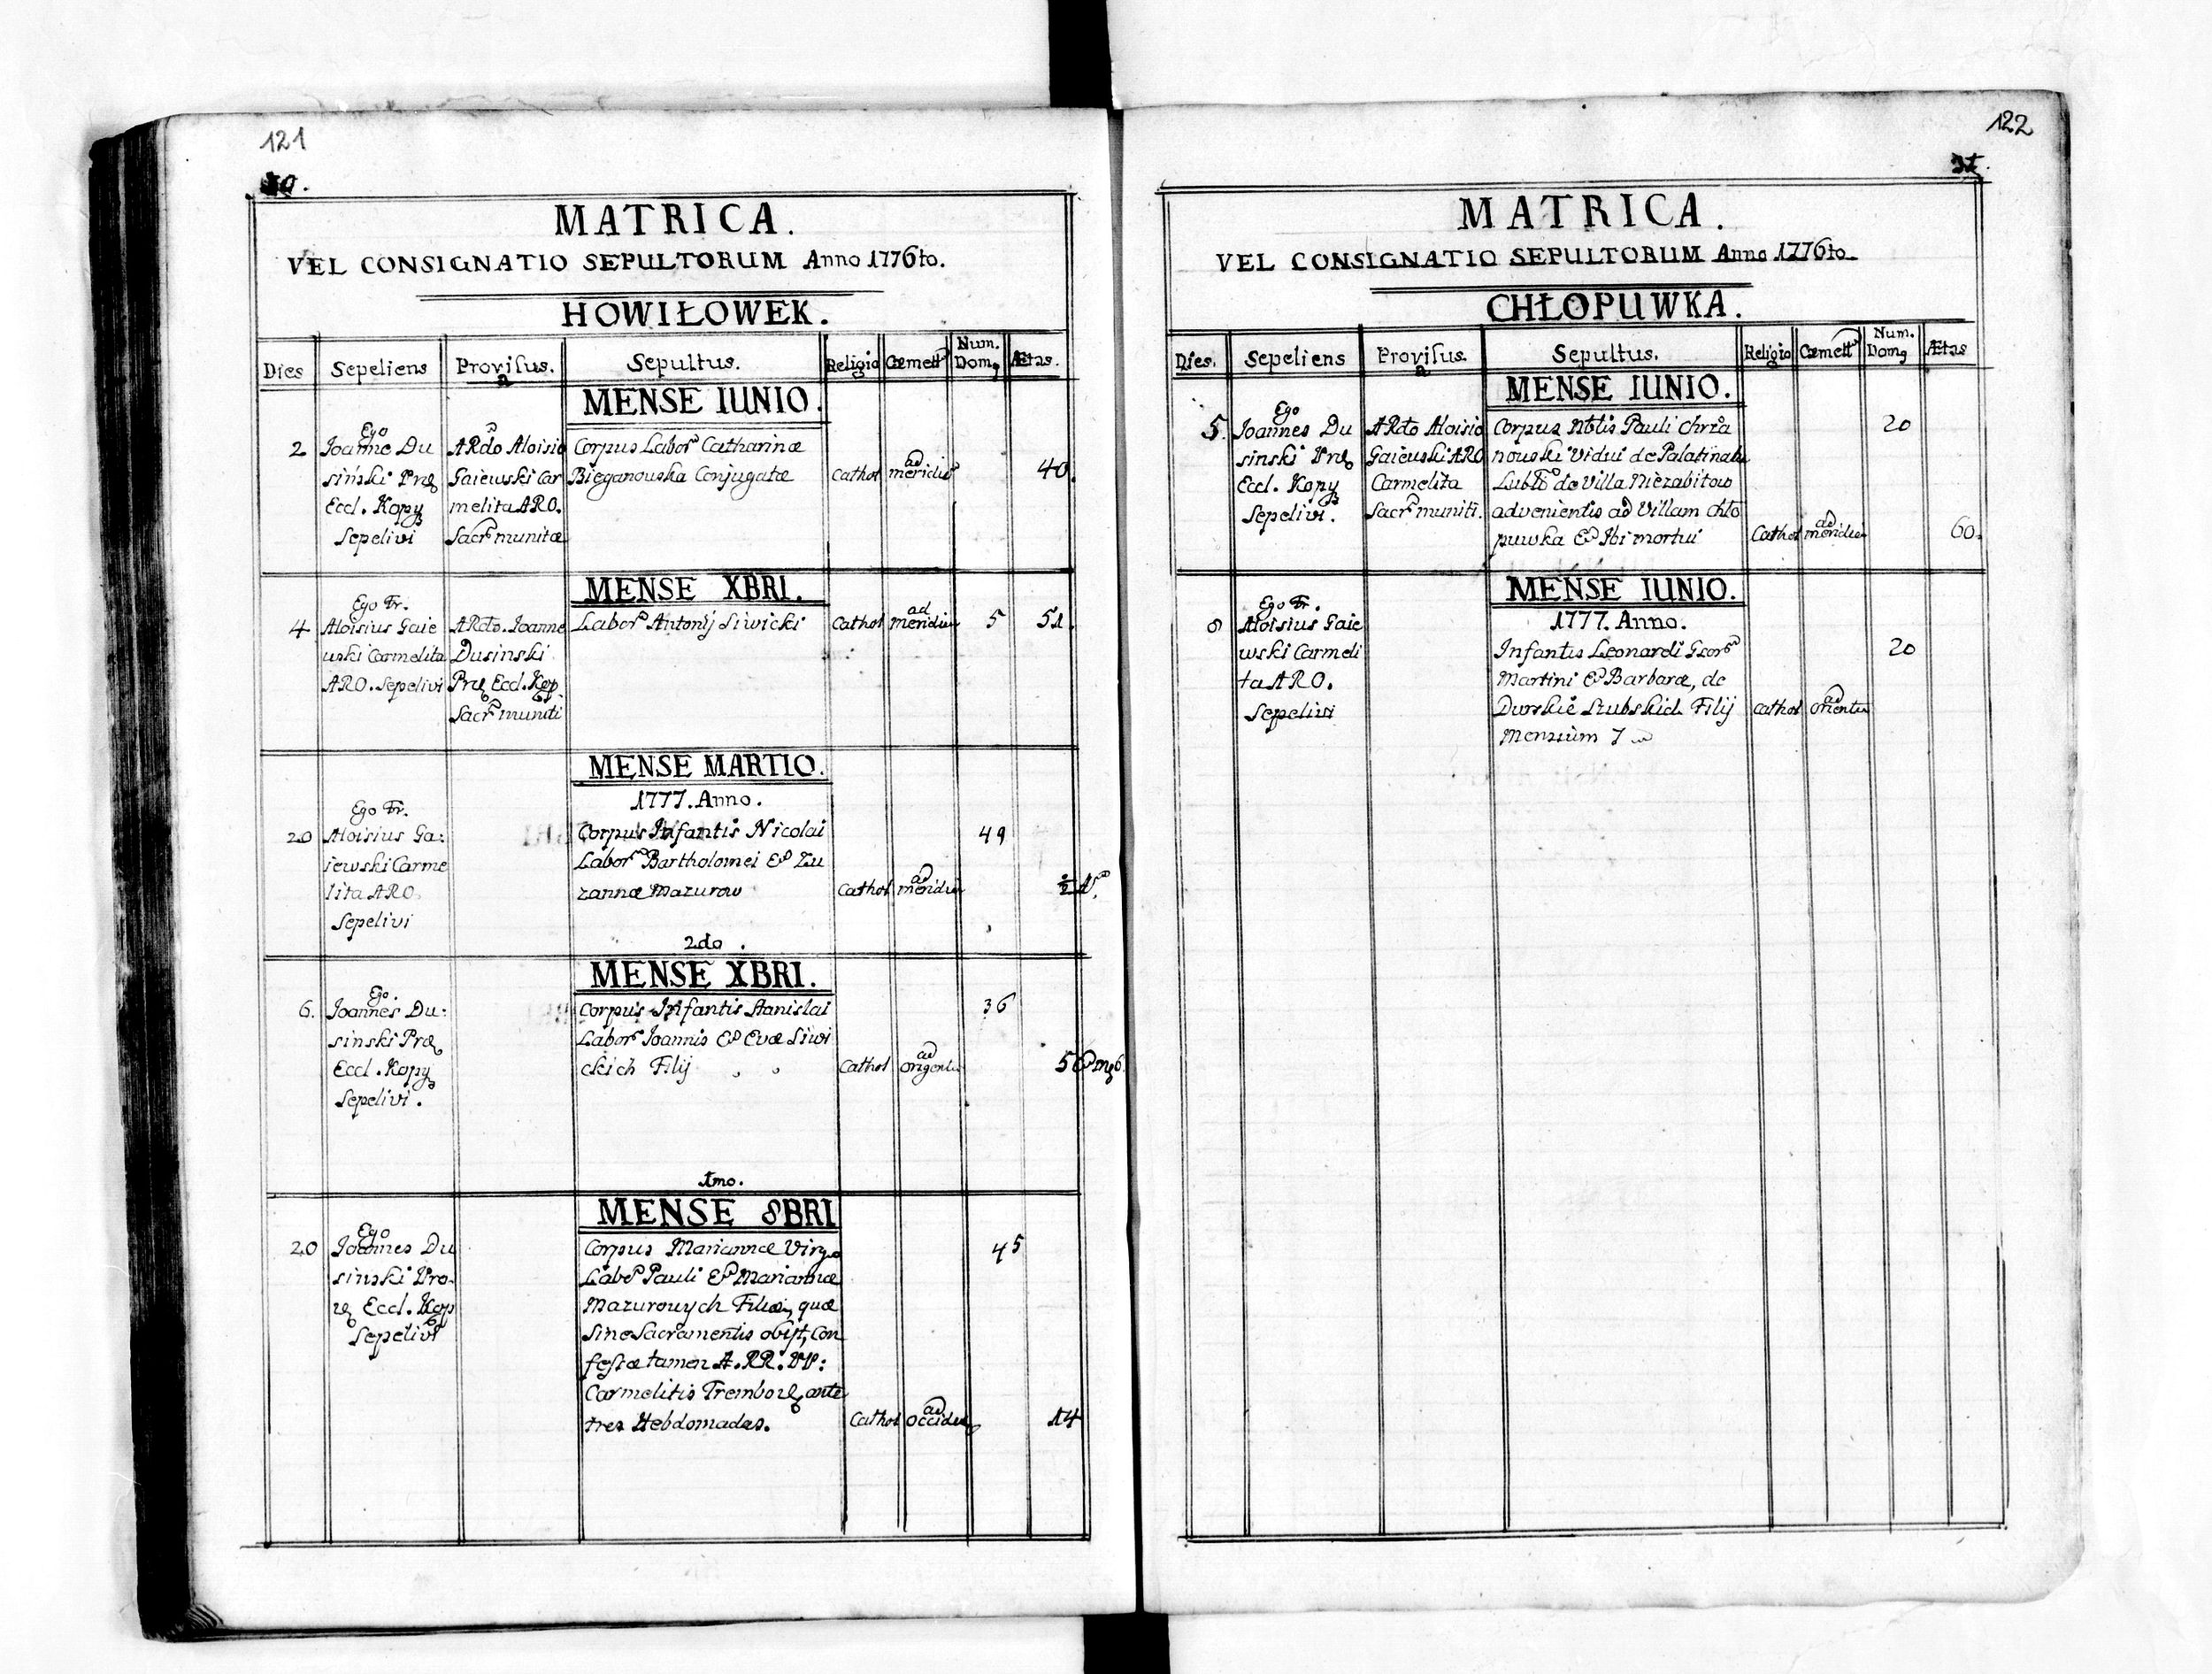 121
MATRICA.
VEL CONSIGNATIO SEPULTORUM Anno 1776to.
HOWIŁOWEK.
Dies Sepeliens Provisus. a Sepultus. Religio Cæmett Num. Dom9 Ætas.
MENSE IUNIO.
2 Ego
Joanne Du
sinski Præ
Eccl. Kopy
Sepelivi
ARdo Aloisio
Gaiewski Car
melita ARO.
Sacr munitæ
Corpus Labor Catharinæ
Bieganouska Conjugatæ
Cathol ad meridie 40.
MENSE XBRI.
4 Ego Fr.
Aloisius Gaie
uski Carmelita
ARO. Sepelivi
ARdo. Joanne
Dusinski
Præ Eccl. Kop.
Sacr muniti
Labor Antonij Siwicki
Cathol ad meridie 5 51.
MENSE MARTIO.
1777. Anno.
20 Ego Fr.
Aloisius Ga:
iewski Carme
lita ARO.
Sepelivi
Corpus Infantis Nicolai
Labor Bartholomei & Zu
zannæ Mazurow
Cathol ad meridie 49
2do.
MENSE XBRI.
6. Ego.
Joannes Du:
sinski Præ
Eccl. Kopy
Sepelivi.
Corpus Infantis Stanislai
Labor Joannis & Evæ Siwi
ckich Filij
Cathol ad origente 36 5 & m 6.
1mo.
MENSE 8BRI
20 Ego
Joannes Du
sinski Pro-
Eccl. Kop
Sepelivi
Corpus Mariannæ Virgo
Labor Pauli & Mariannæ
Mazurowych Filiæ, quæ
Sine Sacramentis obijt, Con
fessæ tamen A. RR. PP:
Carmelitis Trembo ante
tres Hebdomadas.
Cathol ad occide 45 14
122
31.
MATRICA.
VEL CONSIGNATIO SEPULTORUM Anno 1776to
CHŁOPUWKA.
Dies. Sepeliens Provisus. a Sepultus. Religio Cæmett Num. Dom9 Ætas
MENSE IUNIO.
5. Ego
Joannes Du
sinski Præ
Eccl. Kopy
Sepelivi.
ARdo Aloisio
Gaieuski ARO
Carmelita
Sacr muniti.
Corpus Nblis Pauli Chrza
nouski Vidui de Palatinatu
Lubl de Villa Niezabitow
advenientis ad Villam Chło
puwka & Ibi mortui
Cathol ad meridie 20 60.
MENSE IUNIO.
1777. Anno.
8 Ego Fr.
Aloisius Gaie
wski Carmeli
ta ARO.
Sepelivi
Infantis Leonardi
Martini & Barbaræ, de
Filij
Mensium 7
Cathol ad oriente 20